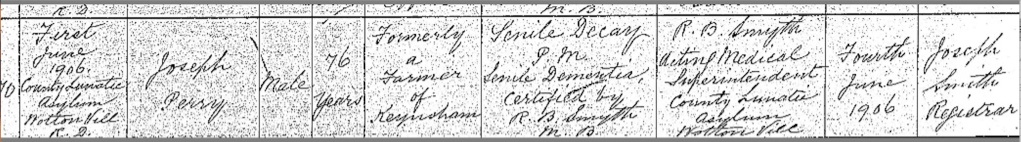 R. D.
M. B.
First
June
1906.
County Lunatic
Asylum
Wotton Vill
R. D.
Joseph
Perry
Male
76
Years
Formerly
a
Farmer
of
Keynsham
Senile Decay
P.M.
Senile Dementia,
Certified by
R. B. Smyth
M. B.
R. B. Smyth
Acting Medical
Superintendent
County Lunatic
Asylum
Wotton Vill
Fourth
June
1906
Joseph
Smith
Registrar